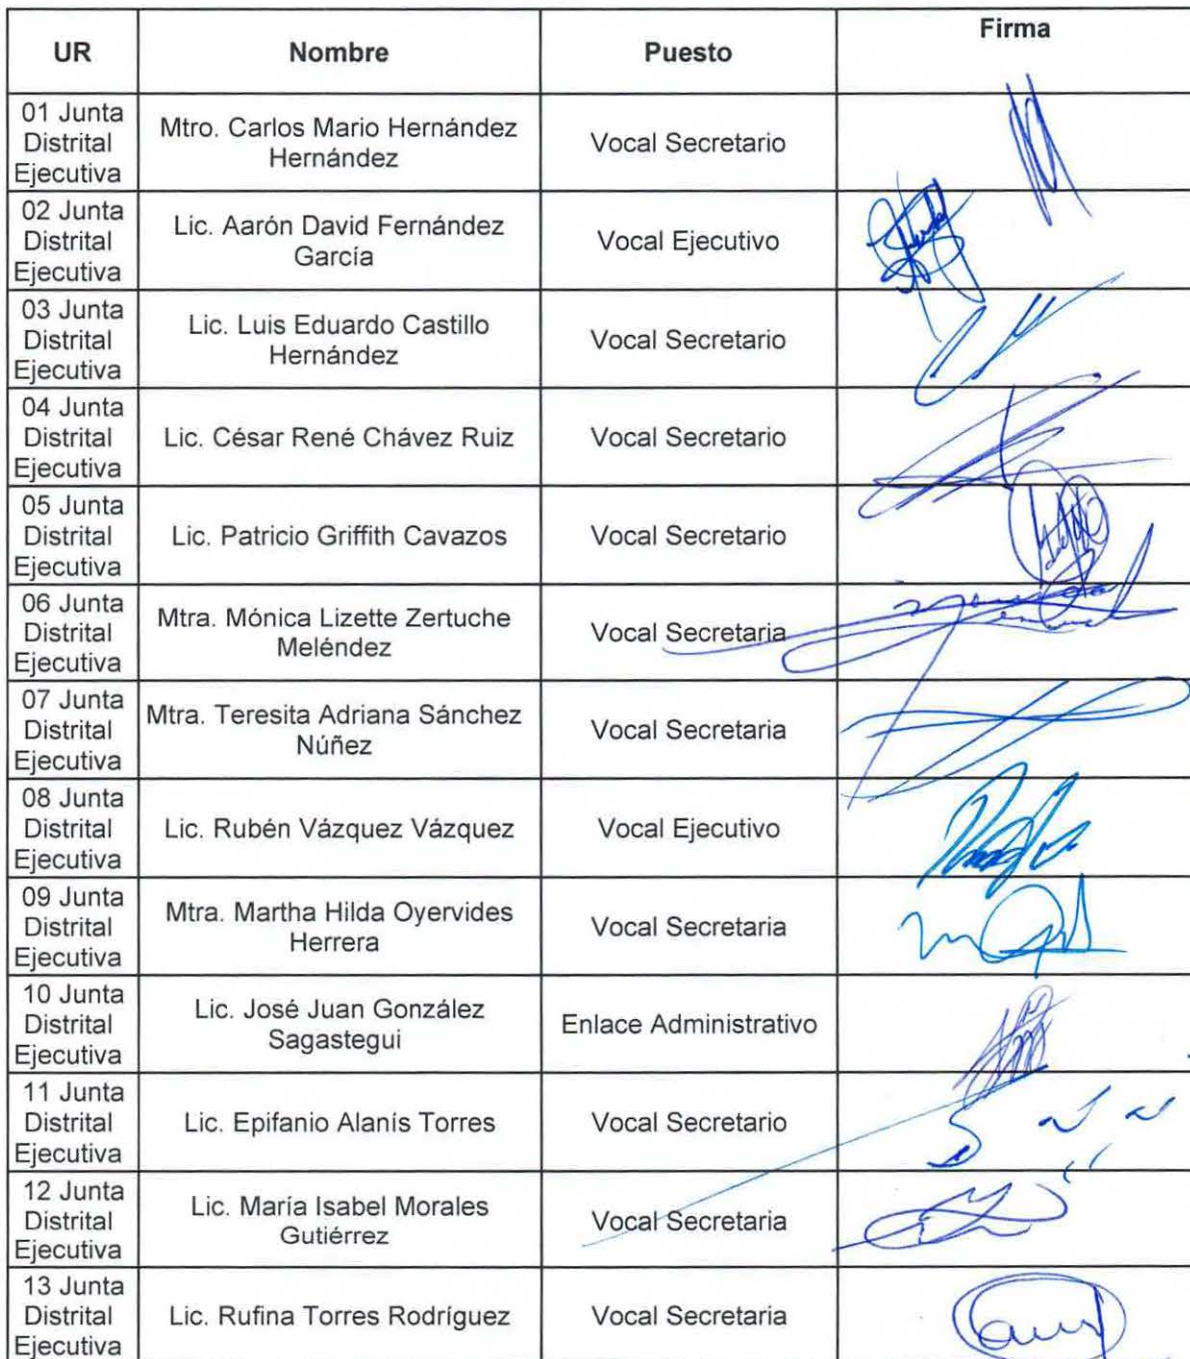 UR Nombre Puesto Firma
01 Junta
Distrital
Ejecutiva
Mtro. Carlos Mario Hernández
Hernández
Vocal Secretario
02 Junta
Distrital
Ejecutiva
Lic. Aarón David Fernández
García
Vocal Ejecutivo
03 Junta
Distrital
Ejecutiva
Lic. Luis Eduardo Castillo
Hernández
Vocal Secretario
04 Junta
Distrital
Ejecutiva
Lic. César René Chávez Ruiz
Vocal Secretario
05 Junta
Distrital
Ejecutiva
Lic. Patricio Griffith Cavazos
Vocal Secretario
06 Junta
Distrital
Ejecutiva
Mtra. Mónica Lizette Zertuche
Meléndez
Vocal Secretaria
07 Junta
Distrital
Ejecutiva
Mtra. Teresita Adriana Sánchez
Núñez
Vocal Secretaria
08 Junta
Distrital
Ejecutiva
Lic. Rubén Vázquez Vázquez
Vocal Ejecutivo
09 Junta
Distrital
Ejecutiva
Mtra. Martha Hilda Oyervides
Herrera
Vocal Secretaria
10 Junta
Distrital
Ejecutiva
Lic. José Juan González
Sagastegui
Enlace Administrativo
11 Junta
Distrital
Ejecutiva
Lic. Epifanio Alanís Torres
Vocal Secretario
12 Junta
Distrital
Ejecutiva
Lic. María Isabel Morales
Gutiérrez
Vocal Secretaria
13 Junta
Distrital
Ejecutiva
Lic. Rufina Torres Rodríguez
Vocal Secretaria